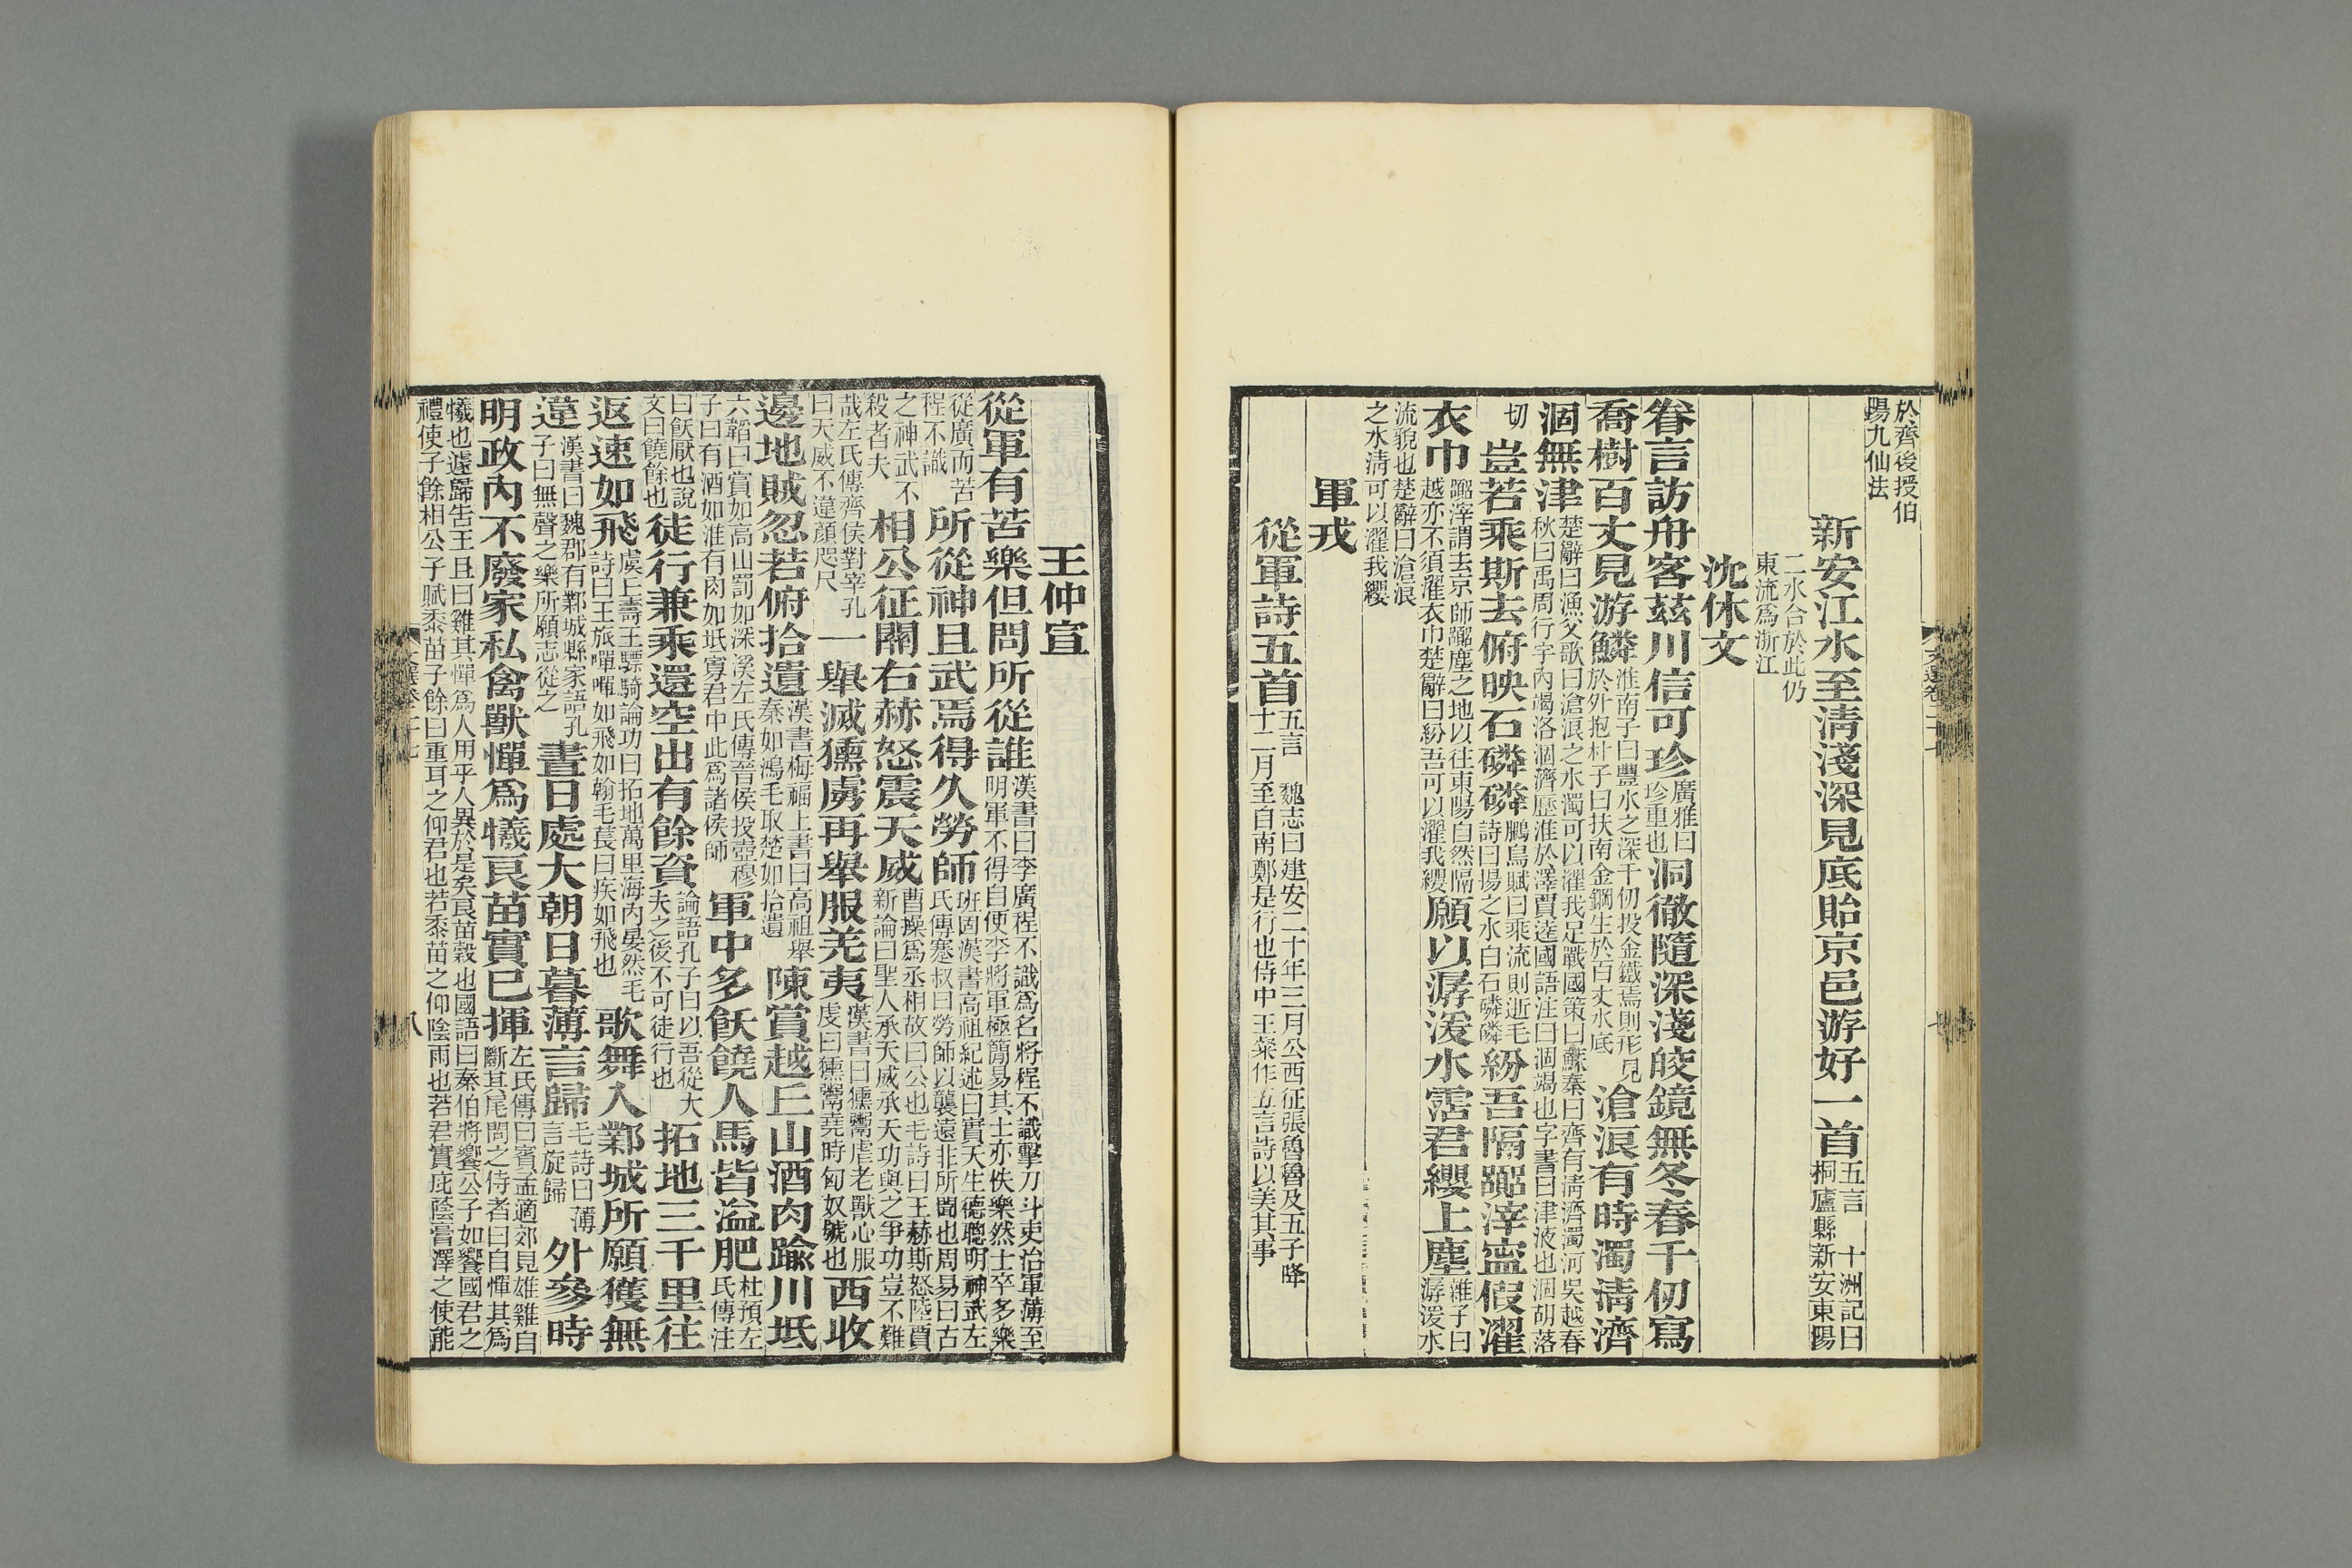 於齊後授伯
陽九仙法
新安江水至淸淺深見底貽京邑游好一首五言 十洲記曰
桐廬縣新安東陽
二水合於此仍
東流爲浙江
沈休文
眷言訪舟客茲川信可珍廣雅曰
珍重也洞徹隨深淺皎鏡無冬春千仞寫
喬樹百丈見游鱗淮南子曰豐水之深千仞投金鐵焉則形見
於外抱朴子曰扶南金鋼生於百丈水底滄浪有時濁淸濟
涸無津楚辭曰漁父歌曰滄浪之水濁可以濯我足戰國策曰蘇秦曰齊有淸濟濁河吳越春
秋曰禹周行字內竭洛涸濟歷淮於澤賈逵國語注曰涸竭也字書曰津液也涸胡落
切豈若乘斯去俯映石磷磷鵬鳥賦曰乘流則逝毛
詩曰揚之水白石磷磷紛吾隔囂滓寧假濯
衣巾囂滓謂去京師囂塵之地以往東陽自然隔
越亦不須濯衣巾楚辭曰紛吾可以濯我纓願以潺湲水霑君纓上塵雜子曰
潺湲水
流貌也楚辭曰滄浪
之水淸可以濯我纓
軍戎
從軍詩五首五言 魏志曰建安二十年三月公西征張魯魯及五子降
十二月至自南鄭是行也侍中王粲作五言詩以美其事
王仲宣
從軍有苦樂但問所從誰漢書曰李廣程不識爲名將程不識擊刀斗吏治軍薄至
明軍不得自便李將軍極簡易其士亦佚樂然士卒多樂
從廣而苦
程不識所從神且武焉得久勞師班固漢書高祖紀述曰實天生德聰明神武左
氏傳蹇叔曰勞師以襲遠非所聞也周易曰古
之神武不
殺者夫相公征關右赫怒震天威曹操爲丞相故曰公也毛詩曰王赫斯怒陸賈
新論曰聖人承天威承天功與之爭功豈不難
哉左氏傳齊侯對宰孔
曰天威不違顏咫尺一舉滅獯虜再舉服羌夷漢書曰獯鬻虐老獸心服
虔曰獯鬻堯時匈奴號也西收
邊地賊忽若俯拾遺漢書梅福上書曰高祖舉
秦如鴻毛取楚如拾遺陳賞越丘山酒肉踰川坻
六韜曰賞如高山罰如深溪左氏傳晉侯投壺穆
子曰有酒如淮有肉如坻寡君中此爲諸侯師軍中多飫饒人馬皆溢肥杜預左
氏傳注
曰飫厭也說
文曰饒餘也徒行兼乘還空出有餘資論語孔子曰以吾從大
夫之後不可徒行也拓地三千里往
返速如飛虞丘壽王驃騎論功曰拓地萬里海內晏然毛
詩曰王旅嘽嘽如飛如翰毛萇曰疾如飛也歌舞入鄴城所願獲無
違漢書曰魏郡有鄴城縣家語孔
子曰無聲之樂所願志從之晝日處大朝日暮薄言歸毛詩曰薄
言旋歸外參時
明政內不廢家私禽獸憚爲犧良苗實已揮左氏傳曰賓孟適郊見雄雞自
斷其尾問之侍者曰自憚其爲
犧也遽歸告王且曰雞其憚爲人用乎人異於是矣良苗穀也國語曰秦伯將饗公子如饗國君之
禮使子餘相公子賦黍苗子餘曰重耳之仰君也若黍苗之仰陰雨也若君實庇蔭膏澤之使能
八